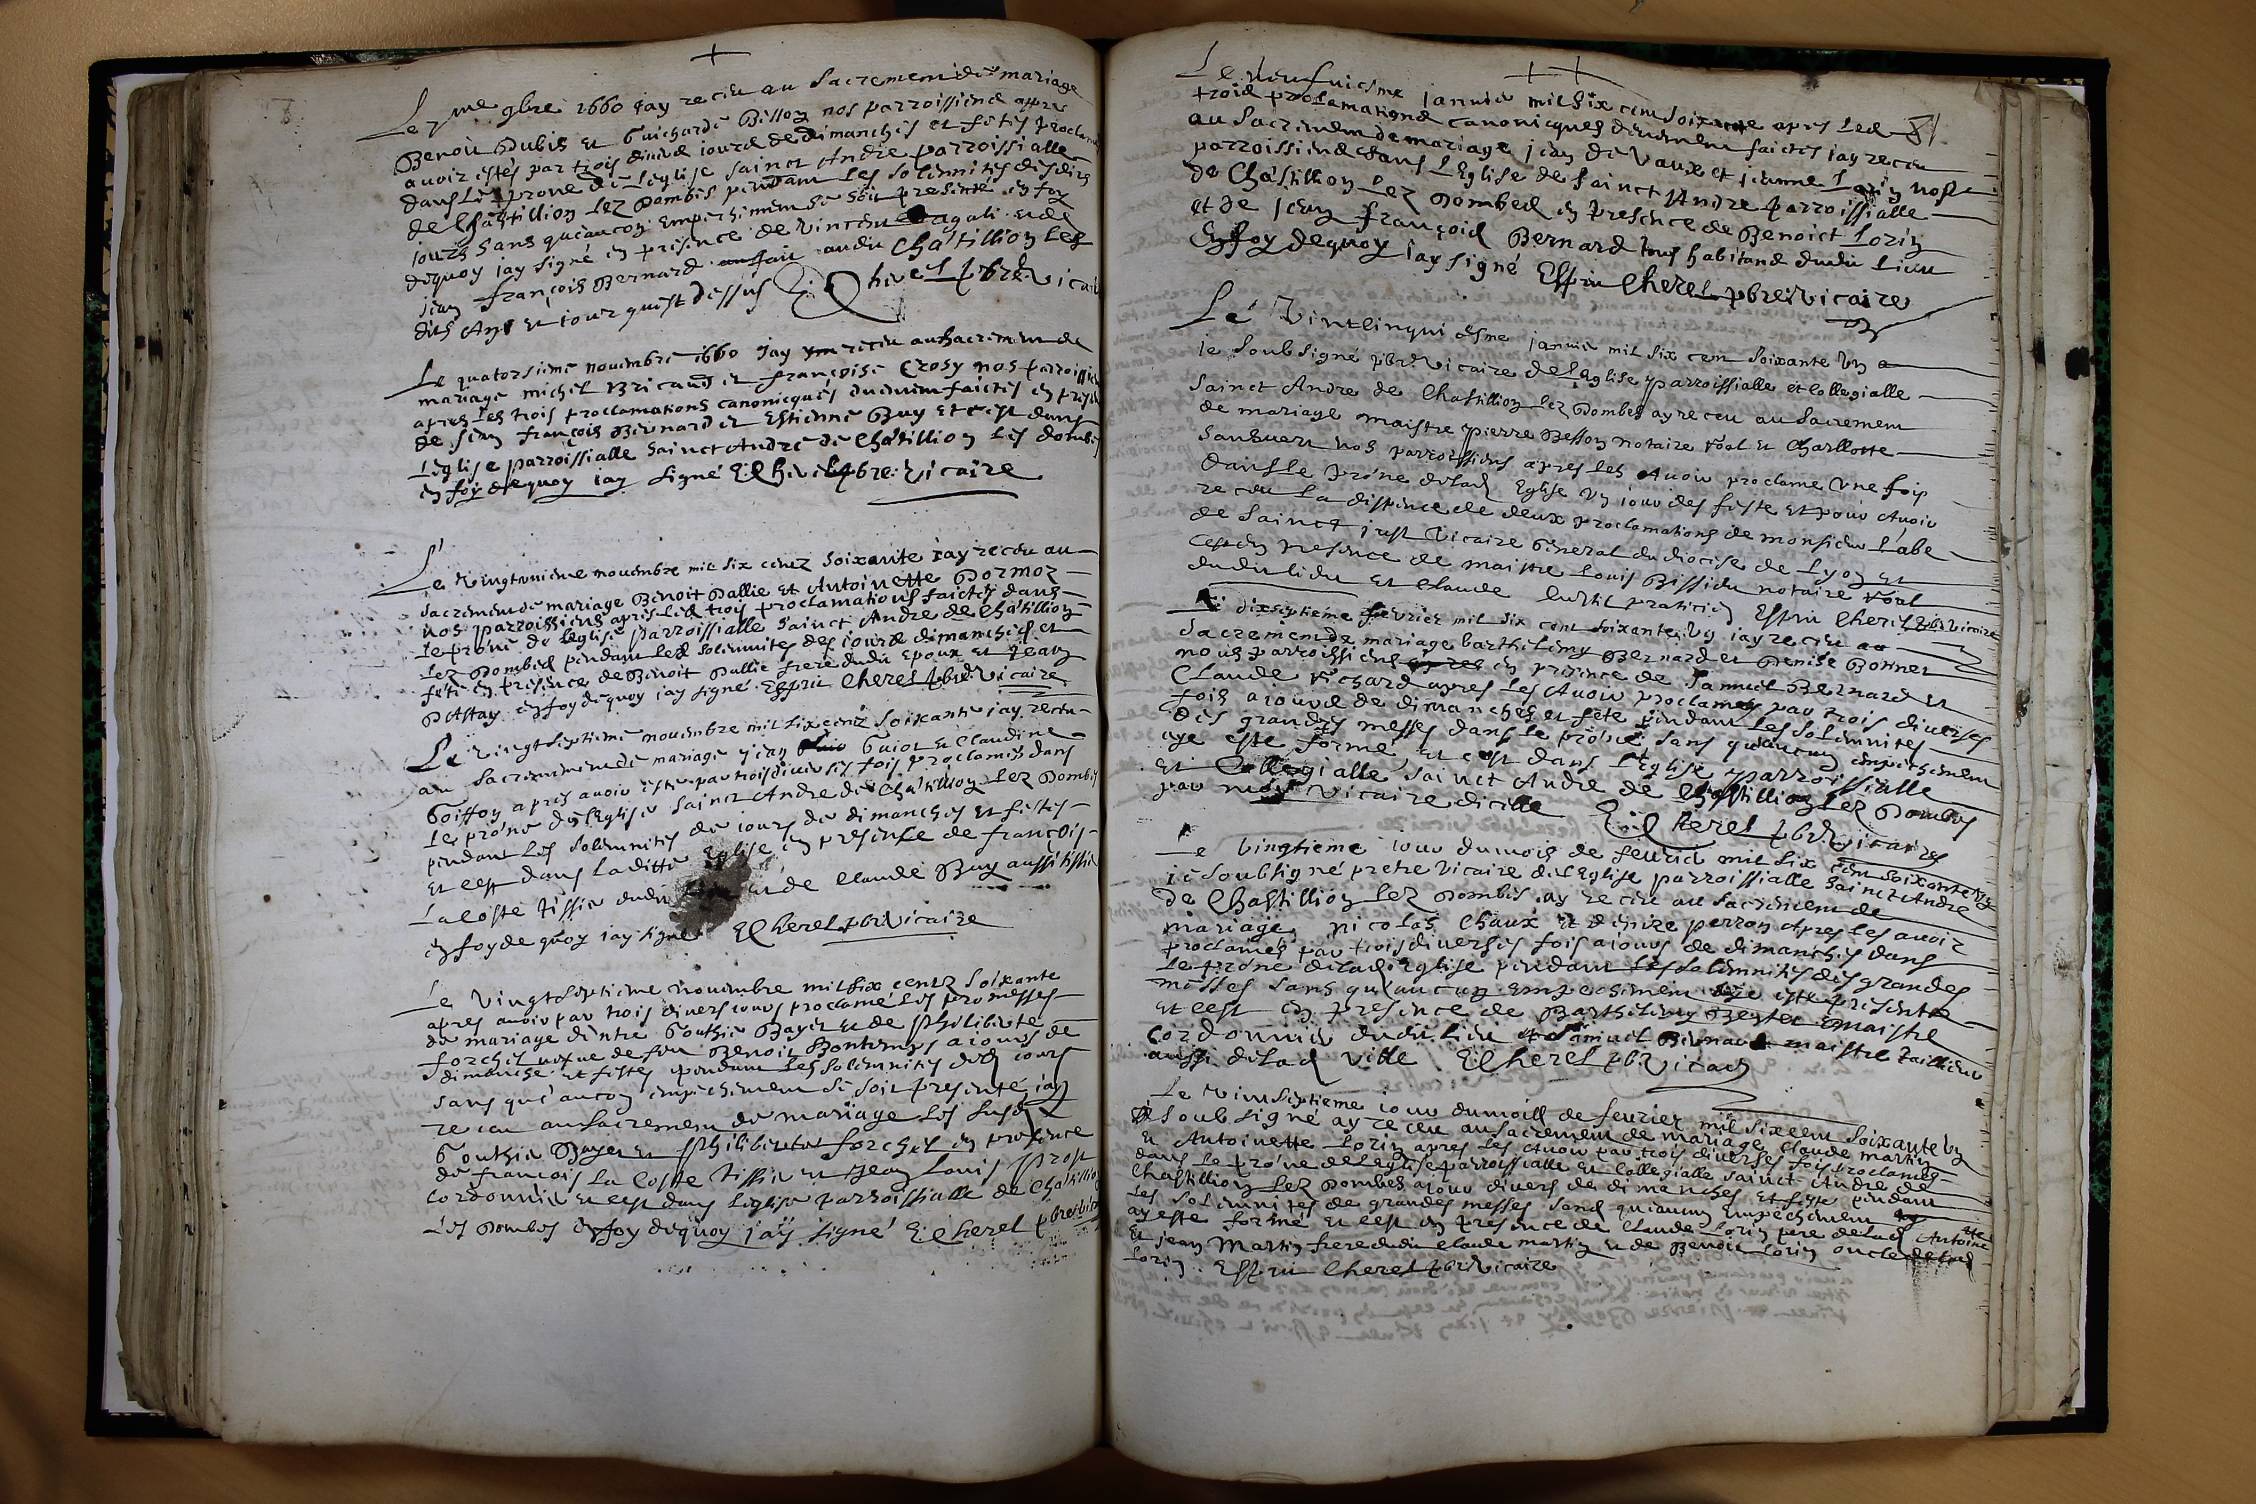 Le 7me 9bre 1660 iay receu au Sacrement de mariage
Benoit Dubis et Guicharde Billon nos parroissiens apres
avoir estés par trois divers iours de dimanches et fetes proclamés
dans le prone de leglise Sainct Andre parroissialle
de Chastillion lez Dombes pendant les solemnites desdits
iours sans qu'aucun empechement se soit presenté en foy
dequoy iay signé en presence de Vincent Agati et de
jean françois Bernard audit Châtillion les
dits An et iour quest dessus E Cherel pbre vicaire
Le quatorsieme novembre 1660 Jay receu au Sacrement de
mariage michel Bricaud et françoise Crosy nos parroissiens
apres les trois proclamations canonicques duement faictes en presence
de jean françois Bernard et Estienne Buy et cest dans
l'eglise parroissialle Sainct Andre de Châtillion les dombes
en foy dequoy iay signé E Cherel pbre vicaire
Le vingtunieme novembre mil six cens soixante iay receu au
Sacrement de mariage Benoit Pallie et Antoinette Dormoz
nos parroissiens apres les trois proclamations faictes dans
le prone de leglise parroissialle Sainct Andre de Châtillion
lez Dombes pendant les solemnites des iours dimanches et
fete en presence de Benoit Pallie frere dudit Epoux et Jean
en foy dequoy iay signé Esprit Cherel pbre vicaire
Le vingtseptieme novembre mil six cens soixante iay receu
au Sacrement de mariage jean Guiot et Claudine
Goiffon apres avoir esté par trois diverses fois proclamés dans
le prone de leglise Sainct Andre de Châtillion lez Dombes
pendant les solemnites de iours de dimanches et festes
et cest dans laditte Eglise en presence de françois
Lacoste tissier dudit et de Claude Buy aussi tissier
en foy de quoy iay signé E Cherel pbre vicaire
Le vingtseptieme novembre mil six cens soixante
apres avoir par trois divers iours proclamé les promesses
de mariage dentre Gonthier Bayer et de philiberte
forchet vefve de feu Benoit Bontemps a iours de
dimenche et festes pendant les solemnites desd iours
sans qu'aucun empechement se soit presente iay
receu au Sacrement de mariage les susd
Gonthier Bayer et philiberte forchet en presence
de francois la Coste tissier et Jean Louis prost
Cordonnier et cest dans leglise parroissialle de Châtillion
Les Dombes en foy dequoy jay signé E Cherel pbre
81
Le neufvieme janvier mil six cent soixante apres les
trois proclamations canonicques deuement faictes jay receu
au Sacrement de mariage jean de Vaux et jeanne Lorin nos
parroissiens dans l'Eglise de Sainct Andre parroissialle
de Chastillion lez Dombes en presence de Benoict Lorin
et de jean françois Bernard tous habitans dudit lieu
En foy dequoy iay signé Esprit Cherel pbre vicaire
Le Vintcinquiesme janvier mil six cent soixante un
ie soubsigné pbre vicaire de l'Eglise parroissialle et Collegialle
Sainct Andre de Chastillion lez Dombes ay receu au Sacrement
de mariage maistre pierre Besson notaire roal et Charllotte
nos parroissiens apres les Avoir proclame une fois
dans le prone de lad Eglise un iour des feste et pour Avoir
receu la dispence de deux proclamations de monsieur l'abe
de Sainct just vicaire General du diocese de Lyon et
cest en presence de maistre Louis Bissieu notaire roal
dudit lieu et Claude praticien Esprit Cherel pbre vicaire
Le dixseptieme fevrier mil six cent soixante un iay receu au
Sacrement de mariage barthelemy Bernard et Denise Bonnet
nous parroissiens en presence de Samuel Bernard et
Claude richard apres les Avoir proclamez par trois diverses
fois a iours de dimanches et fete pendant les solemnites
des grandes messes dans le prône sans qu'aucun empechement
aye este formé et cest dans l'Eglise parroissialle
et Collegialle Sainct Andre de Chastillion lez Dombes
par moy vicaire dicelle E Cherel pbre vicaire
Le vingtieme iour du mois de fevrier mil six cent soixante un
ie soubsigné pretre vicaire de l'Eglise parroissialle Sainct Andre
de Chastillion lez Dombes ay receu au Sacrement de
mariage nicolas Chaux et denise perron Apres les avoir
proclames par trois diverses fois a iours de dimanches dans
le prône de lad Eglise pendant les solemnites des grandes
messes sans qu'aucun empechement aye este presente
et cest en presence de Barthelemy maistre
Cordonnier dudit lieu et Samuel Bernard maistre tailleur
aussi de lad ville E Cherel pbre vicaire
Le vintseptieme iour du mois de fevrier mil six cent soixante un
soubsigné ay receu au Sacrement de mariage Claude martin
et Antoinette Lorin apres les Avoir par trois diverses fois proclamés
dans le prône de leglise parroissialle et Collegialle Sainct Andre de
Chastillion lez Dombes a iour divers de dimanches et feste pendant
les solemnites de grandes messes sans qu'aucun empechement
ay este formé et cest en presence de Claude Lorin pere de lad Antoinette
et jean Martin frere dudit Claude martin et de Benoit Lorin oncle de lad
Lorin. Esprit Cherel pbre vicaire